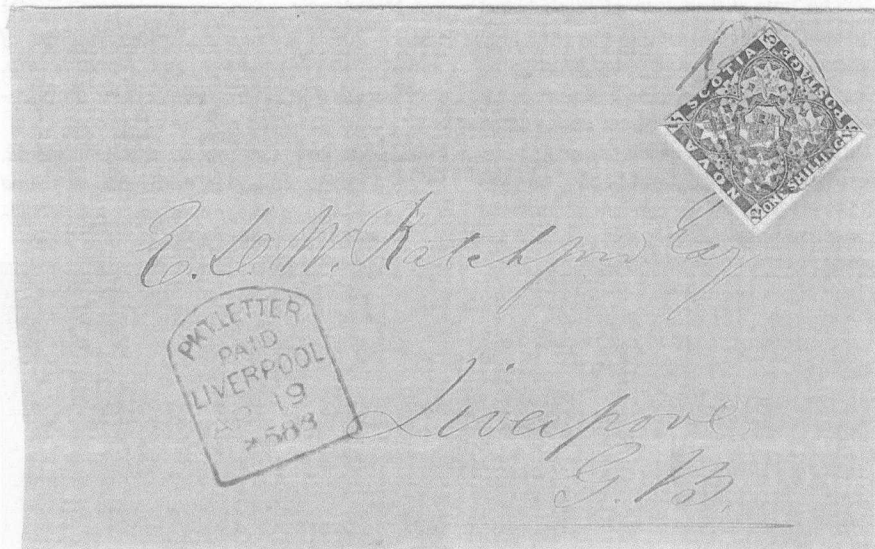 NOVA SCOTIA POSTAGE
ONE SHILLING
E. L. W. Ratchford Esq
PKT. LETTER
PAID
LIVERPOOL
AP 19
Liverpool
G. B.